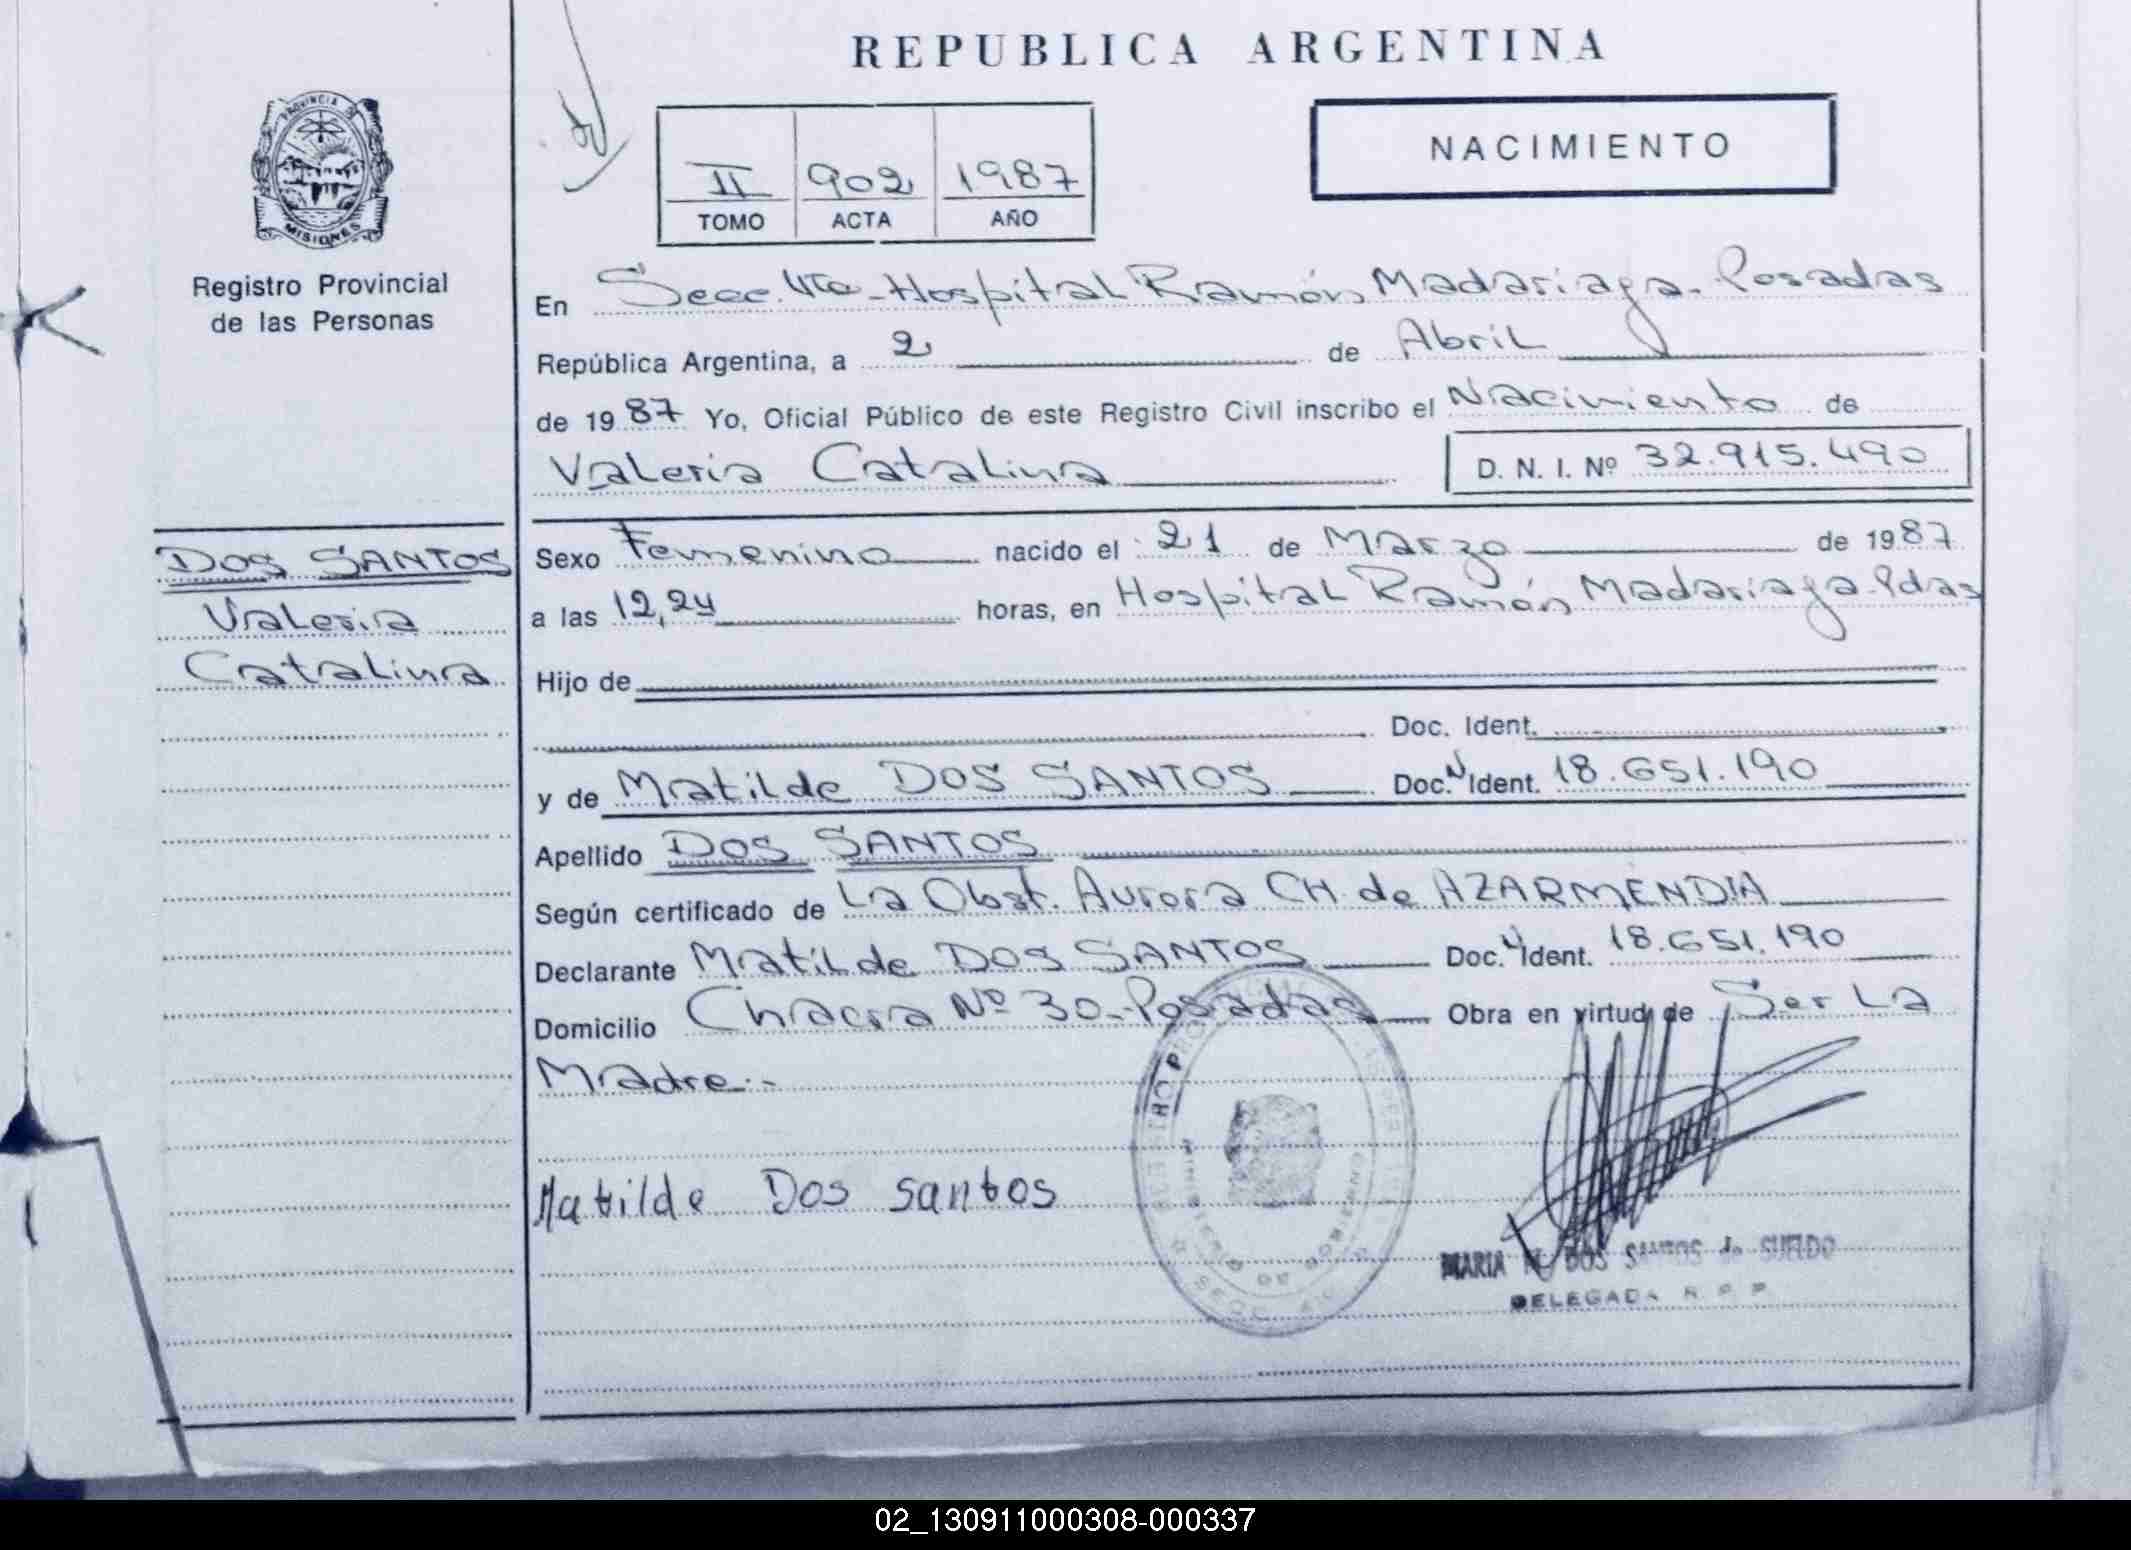 REPUBLICA ARGENTINA
PROVINCIA DE
MISIONES
Registro Provincial
de las Personas
II 902 1987
TOMO ACTA AÑO
NACIMIENTO
En Secc. Vta - Hospital Ramón Madariaga - Posadas
República Argentina, a 2 de Abril
de 1987 Yo, Oficial Público de este Registro Civil inscribo el Nacimiento de
Valeria Catalina D. N. I. Nº 32.915.490
DOS SANTOS
Valeria
Catalina
Sexo Femenino nacido el 21 de Marzo de 1987
a las 12,24 horas, en Hospital Ramón Madariaga - Pdas
Hijo de
Doc. Ident.
y de Matilde DOS SANTOS Doc. N Ident. 18.651.190
Apellido DOS SANTOS
Según certificado de La Obst. Aurora CH. de AZARMENDIA
Declarante Matilde DOS SANTOS Doc. N Ident. 18.651.190
Domicilio Chacra Nº 30 - Posadas Obra en virtud de Ser La
Madre.-
Matilde Dos santos
MINISTERIO DE GOBIERNO
MARIA DOS SANTOS de SUELDO
DELEGADA R. P. P.
02_130911000308-000337